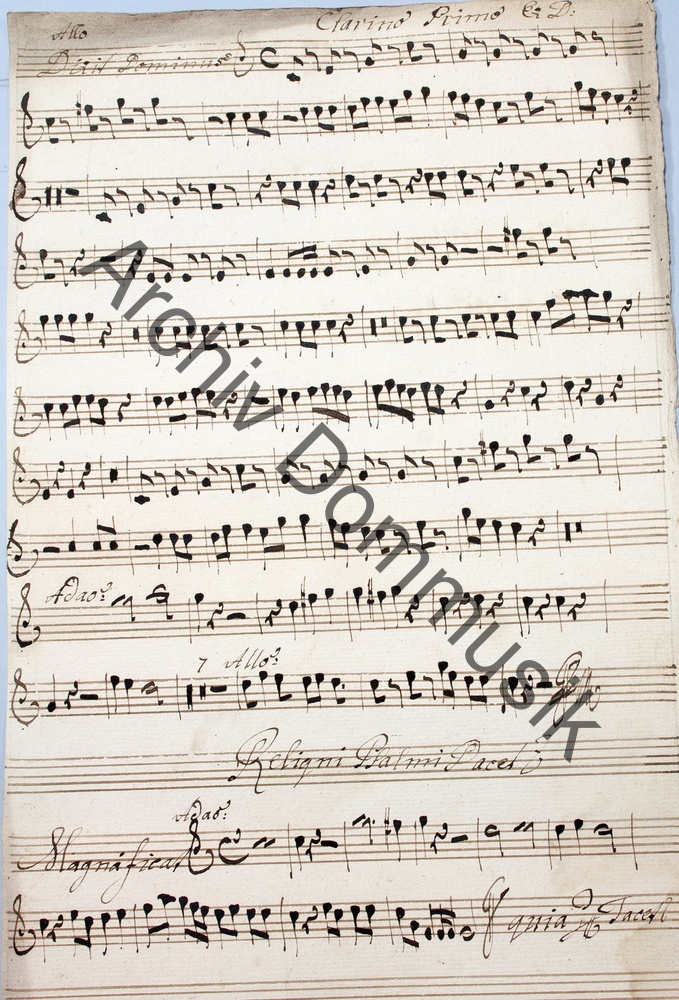 Clarino Primo Ex D:
Allo
Dixit Dominus
Adag:
7 Allo:
Reliqui Psalmi Tacet
Adag:
Magnificat
quia Tacet
Archiv Dommusik